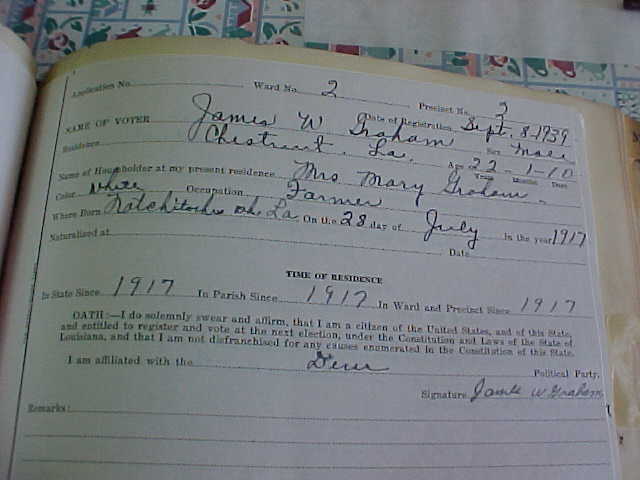 Application No. Ward No. 2 Precinct No. 2
Date of Registration Sept. 8-1939
NAME OF VOTER James W Graham Sex Male
Residence Chestnut, La. Age 22 1-10
Years Months Days
Name of Householder at my present residence Mrs Mary Graham.
Color White Occupation Farmer
Where Born Natchitoches La. On the 28 day of July In the year 1917
Naturalized at Date
TIME OF RESIDENCE
In State Since 1917 In Parish Since 1917 In Ward and Precinct Since 1917
OATH:—I do solemnly swear and affirm, that I am a citizen of the United States, and of this State,
and entitled to register and vote at the next election, under the Constitution and Laws of the State of
Louisiana, and that I am not disfranchised for any causes enumerated in the Constitution of this State.
I am affiliated with the Dem Political Party.
Signature James W Graham
Remarks: